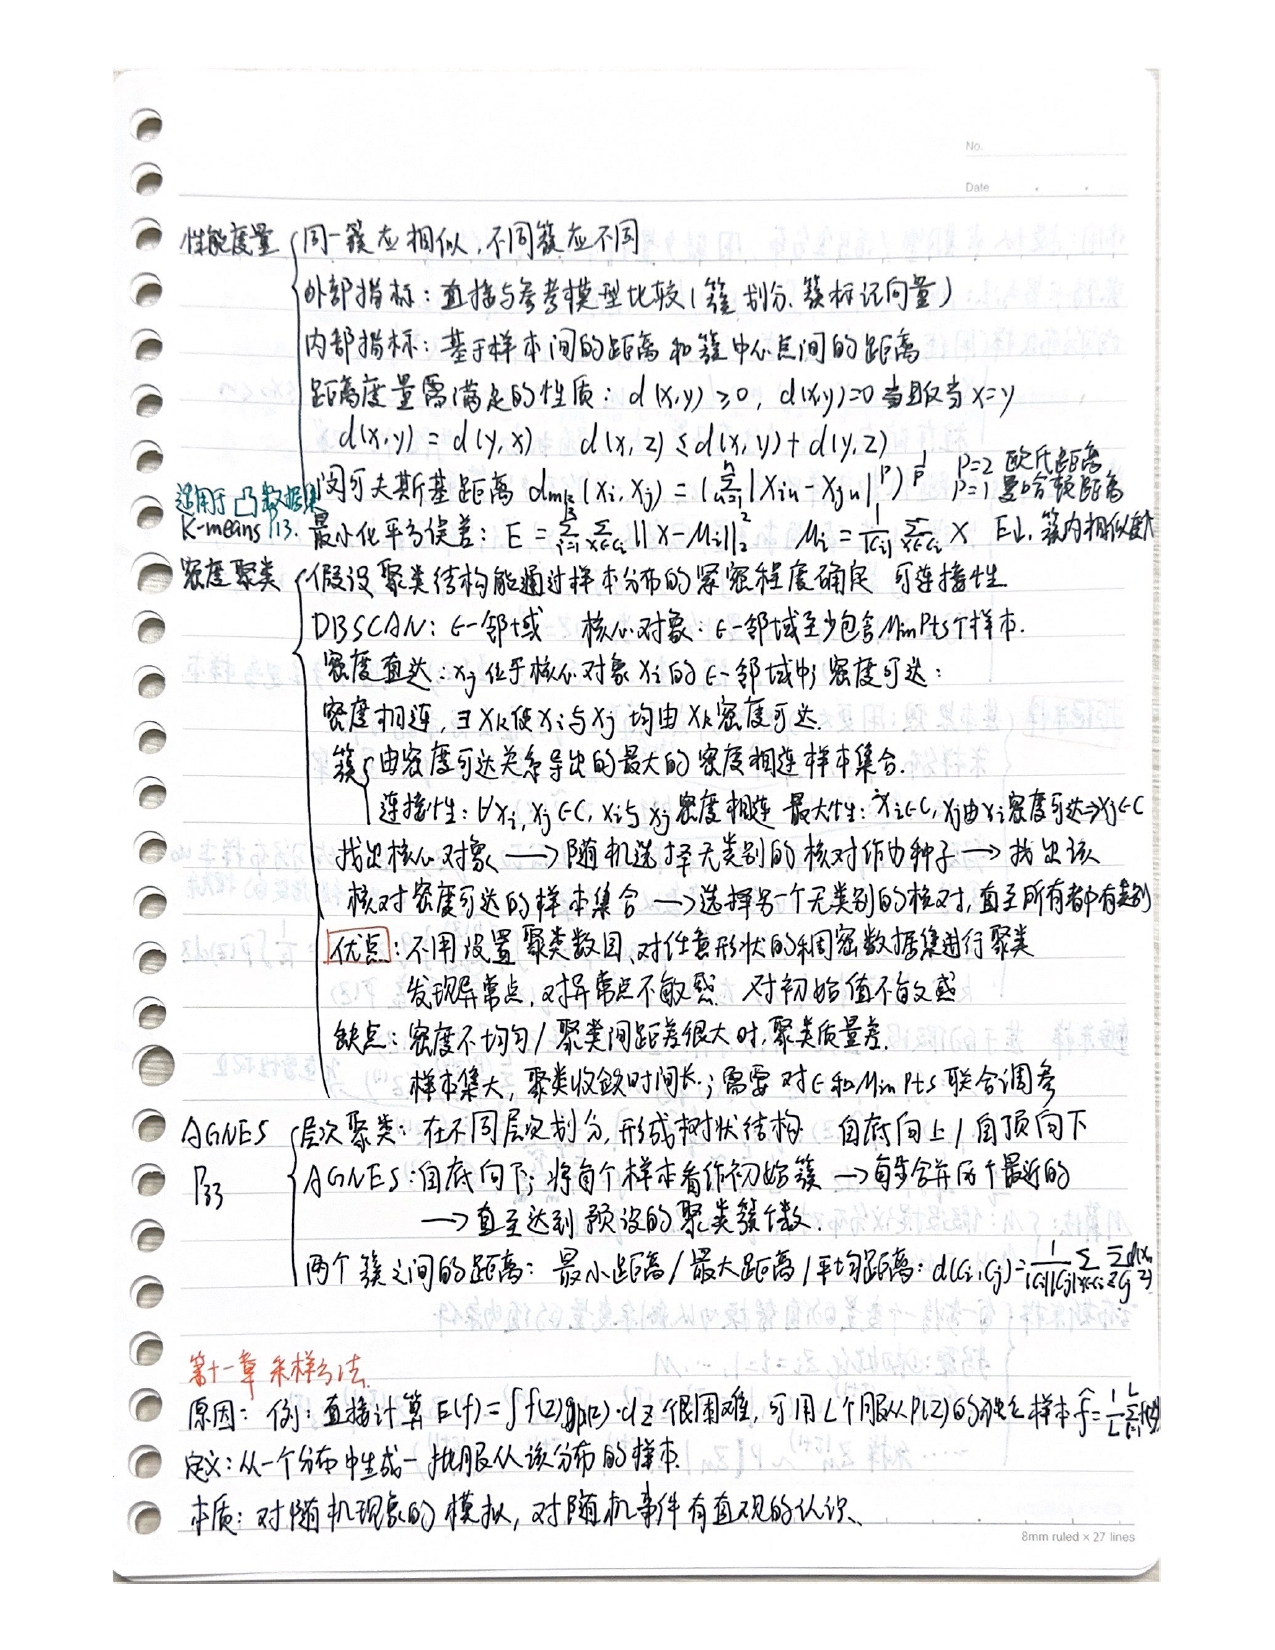 No.
Date
性能度量 同一簇应相似,不同簇应不同
外部指标:直接与参考模型比较(簇划分、簇标记向量)
内部指标:基于样本间的距离和簇中心点间的距离
距离度量需满足的性质:d(x,y)≥0, d(x,y)=0当且仅当x=y
d(x,y)=d(y,x) d(x,z)≤d(x,y)+d(y,z)
闵可夫斯基距离 dmk(xi,xj)=(Σ_{u=1}^{n}|xiu-xju|^p)^{1/p} p=2 欧氏距离
p=1 曼哈顿距离
适用于凸数据集
K-means P13. 最小化平方误差:E=Σ_{i=1}^{k}Σ_{x∈Ci}||x-μi||₂² μi=1/|Ci| Σ_{x∈Ci} x E↓,簇内相似度大
密度聚类 假设聚类结构能通过样本分布的紧密程度确定 可连接性
DBSCAN:ϵ-邻域 核心对象:ϵ-邻域至少包含MinPts个样本.
密度直达:xj位于核心对象xi的ϵ-邻域中; 密度可达:
密度相连,∃xk使xi与xj均由xk密度可达.
簇 由密度可达关系导出的最大的密度相连样本集合.
连接性:∀xi,xj∈C,xi与xj密度相连 最大性:xi∈C,xj由xi密度可达⇒xj∈C
找出核心对象→随机选择无类别的核对作为种子→找出该
核对密度可达的样本集合→选择另一个无类别的核对,直至所有都有类别
优点:不用设置聚类数目,对任意形状的稠密数据集进行聚类
发现异常点,对异常点不敏感 对初始值不敏感
缺点:密度不均匀/聚类间距差很大时,聚类质量差.
样本集大,聚类收敛时间长;需要对ϵ和MinPts联合调参
AGNES 层次聚类:在不同层次划分,形成树状结构 自底向上/自顶向下
P33 AGNES:自底向下;将每个样本看作初始簇→每步合并两个最近的
→直至达到预设的聚类簇个数.
两个簇之间的距离:最小距离/最大距离/平均距离:d(Ci,Cj)=1/|Ci||Cj| Σ_{x∈Ci} Σ_{z∈Cj} d(x,z)
第十一章 采样方法
原因:例:直接计算E(f)=∫f(z)p(z)·dz很困难,可用L个服从P(z)的独立样本f̂=1/L Σ_{l=1}^{L} f(z)
定义:从一个分布中生成一批服从该分布的样本.
本质:对随机现象的模拟,对随机事件有直观的认识、
8mm ruled × 27 lines